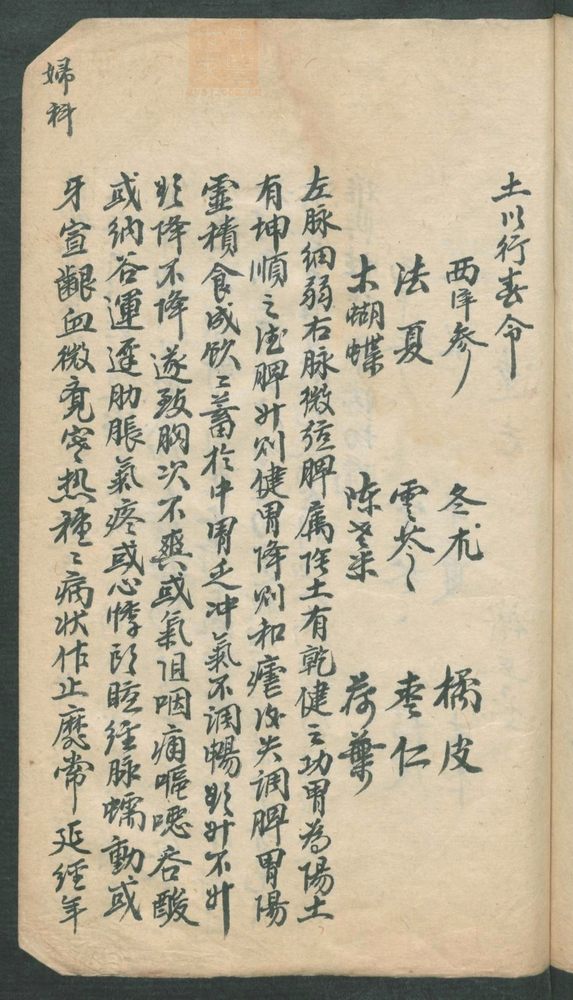 土以行春令
西洋參 冬朮 橘皮
法夏 雲苓 枣仁
木蝴蝶 陈老米 荷葉
左脉細弱右脉微弦脾属陰土有乾健之功胃為陽土
有坤順之德脾升则健胃降则和瘧後失調脾胃陽
虛積食成飲飲蓄於中胃乏冲氣不調暢欲升不升
欲降不降遂致胸次不爽或氣阻咽痛嘔噁吞酸
或納谷運遲肋脹氣疼或心悸頭眩经脉蠕動或
牙宣齦血微覺寒热種種病状作止靡常延经年
婦科